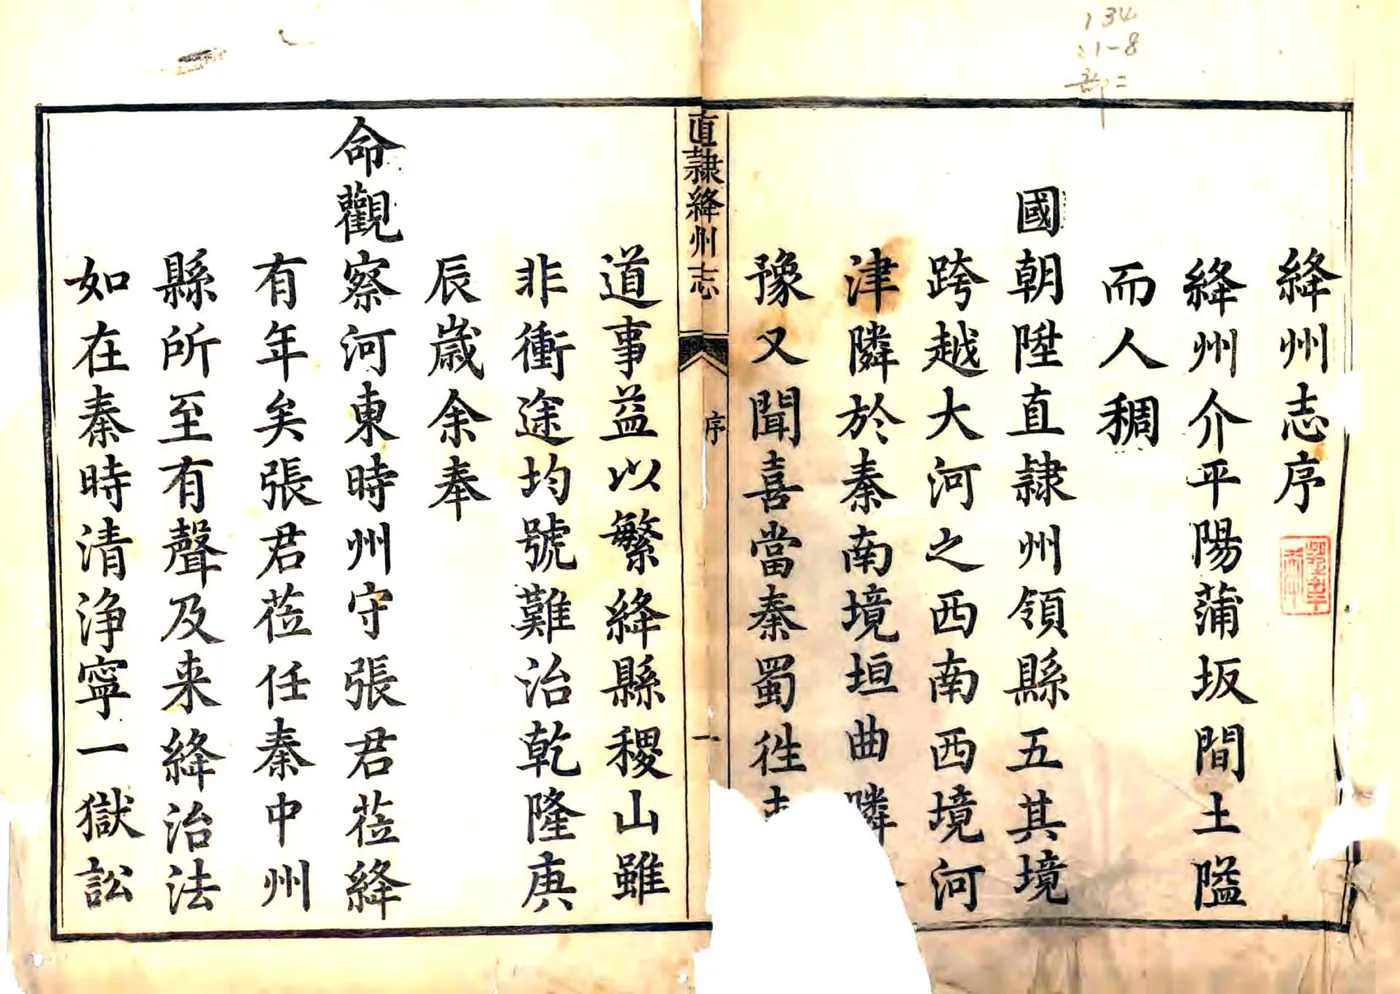 絳州志序
絳州介平陽蒲坂間土隘
而人稠
國朝陞直隸州領縣五其境
跨越大河之西南西境河
津隣於秦南境垣曲隣
豫又聞喜當秦蜀徃
直隸絳州志
序
一
道事益以繁絳縣稷山雖
非衝途均號難治乾隆庚
辰歲余奉
命觀察河東時州守張君蒞絳
有年矣張君蒞任秦中州
縣所至有聲及来絳治法
如在秦時清浄寧一獄訟
134